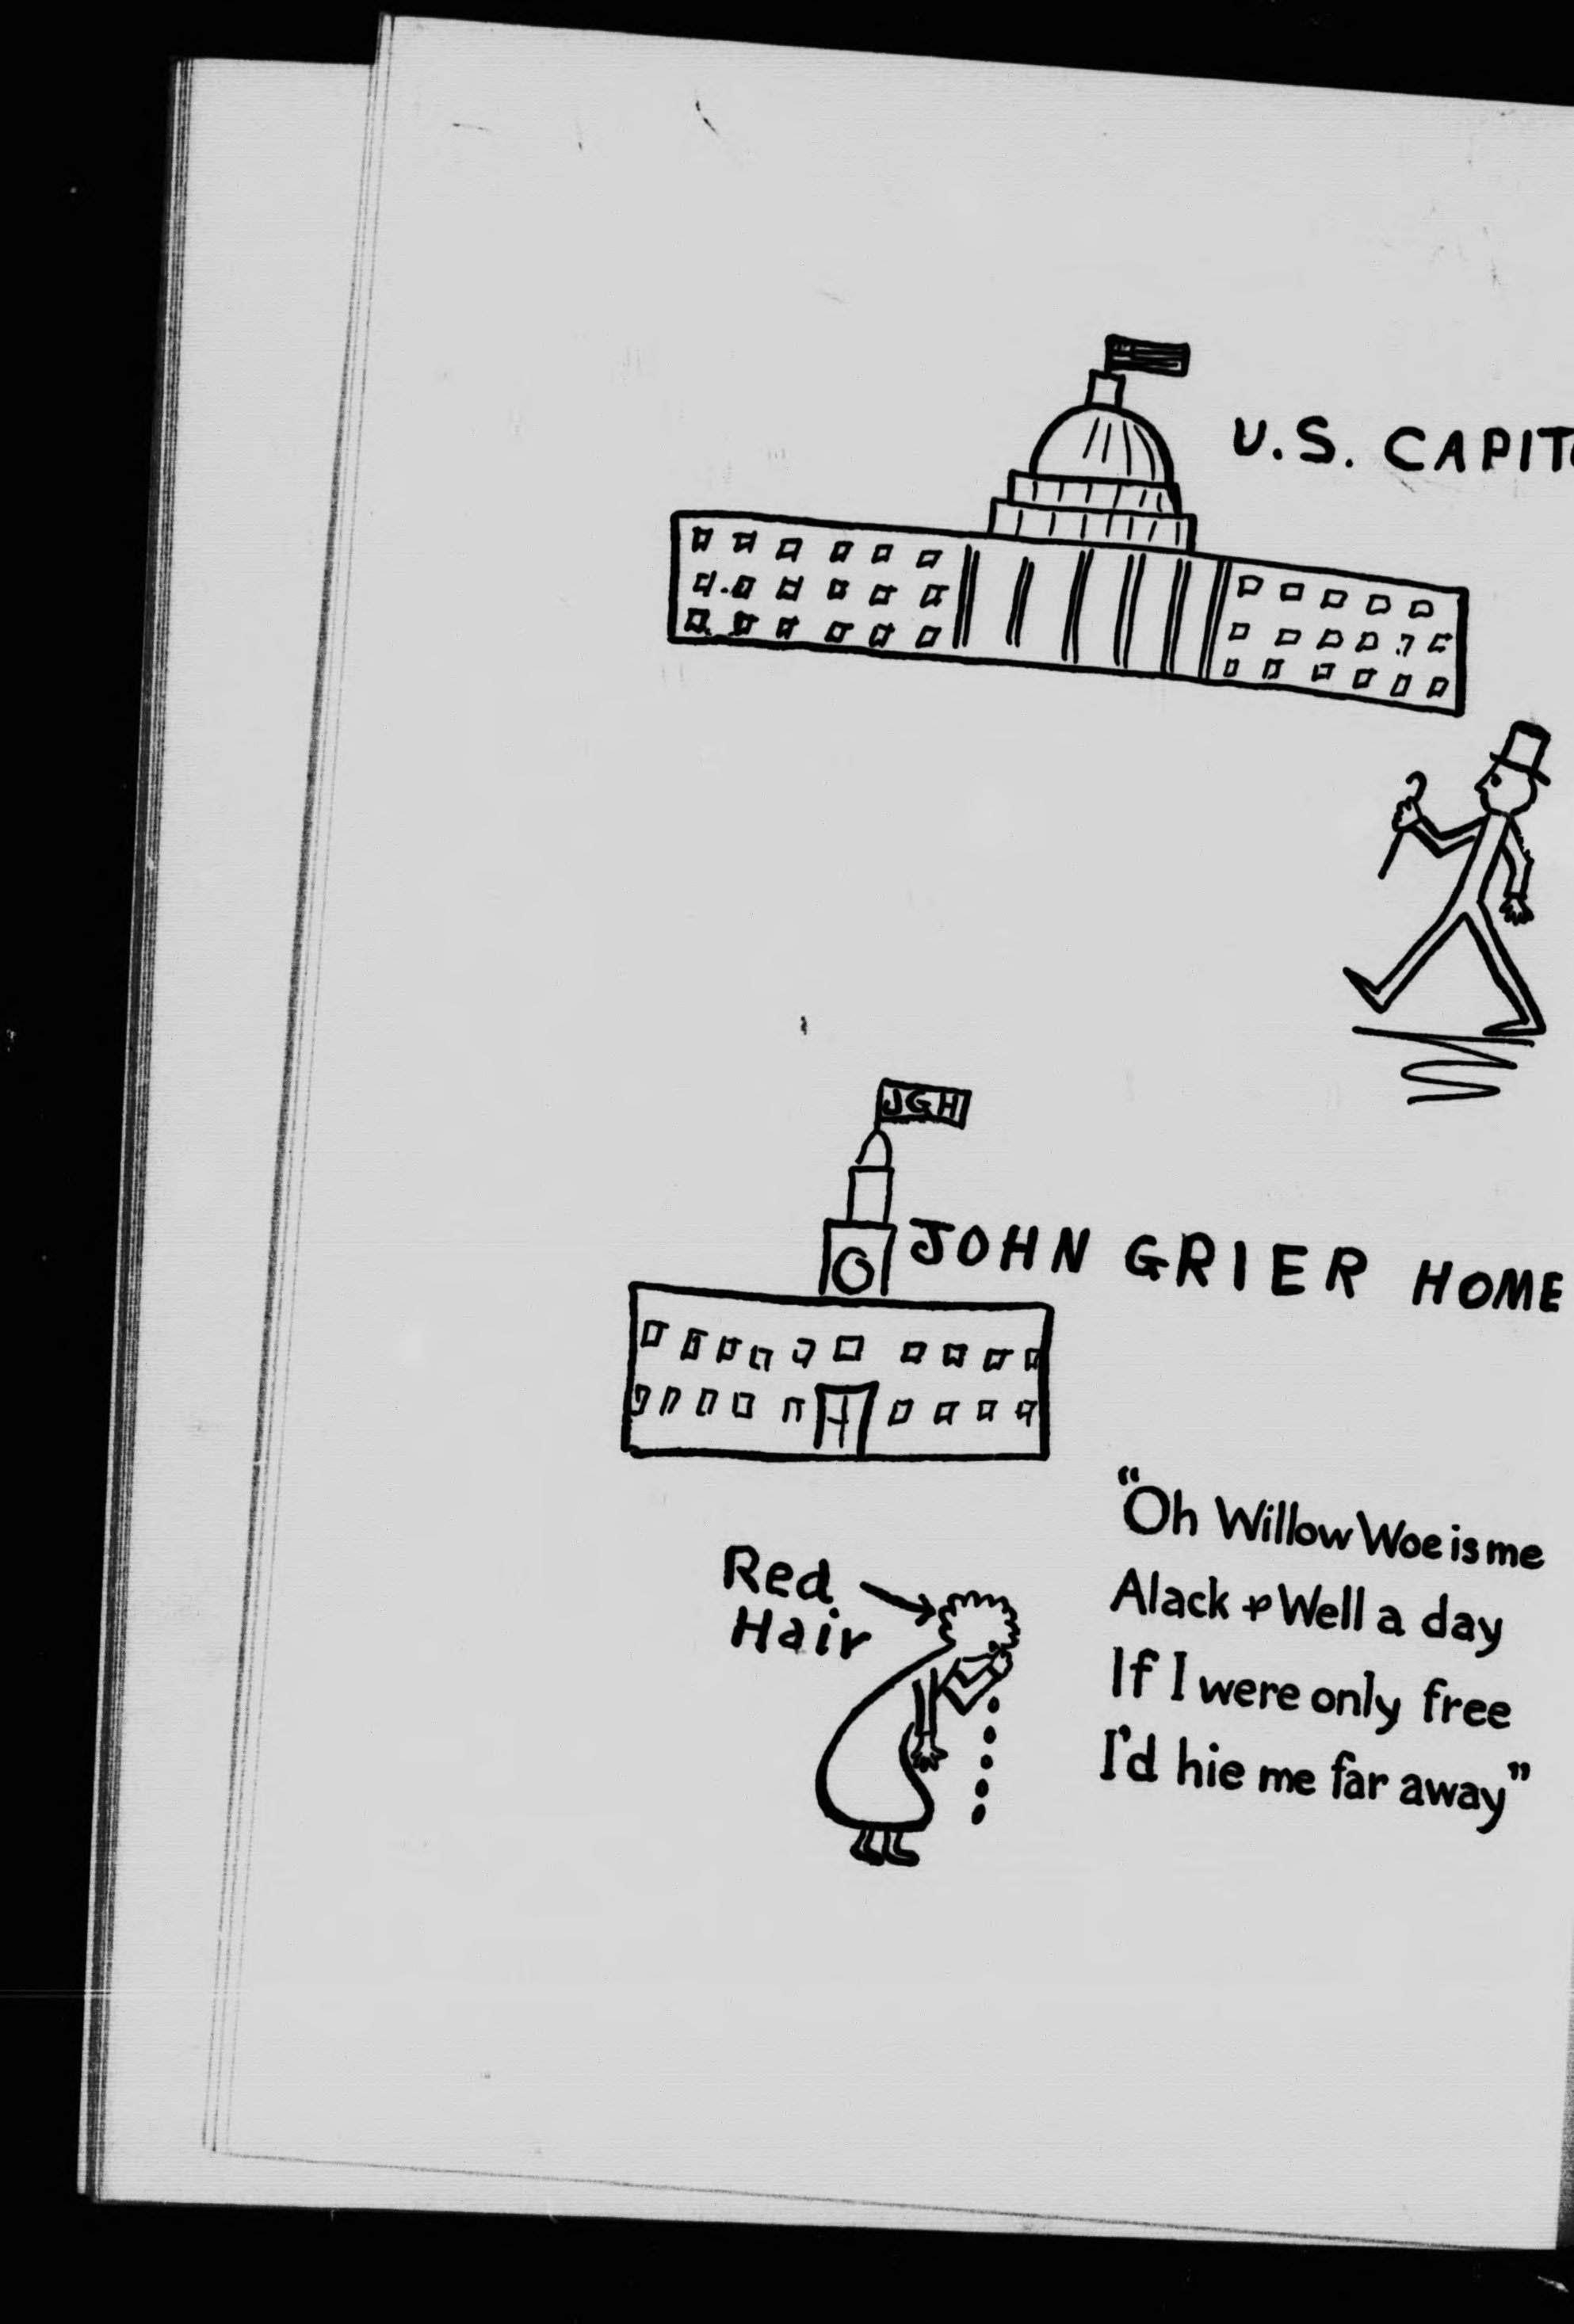 U.S. CAPIT
JGH
JOHN GRIER HOME
Red
Hair
"Oh Willow Woe is me
Alack & Well a day
If I were only free
I'd hie me far away"